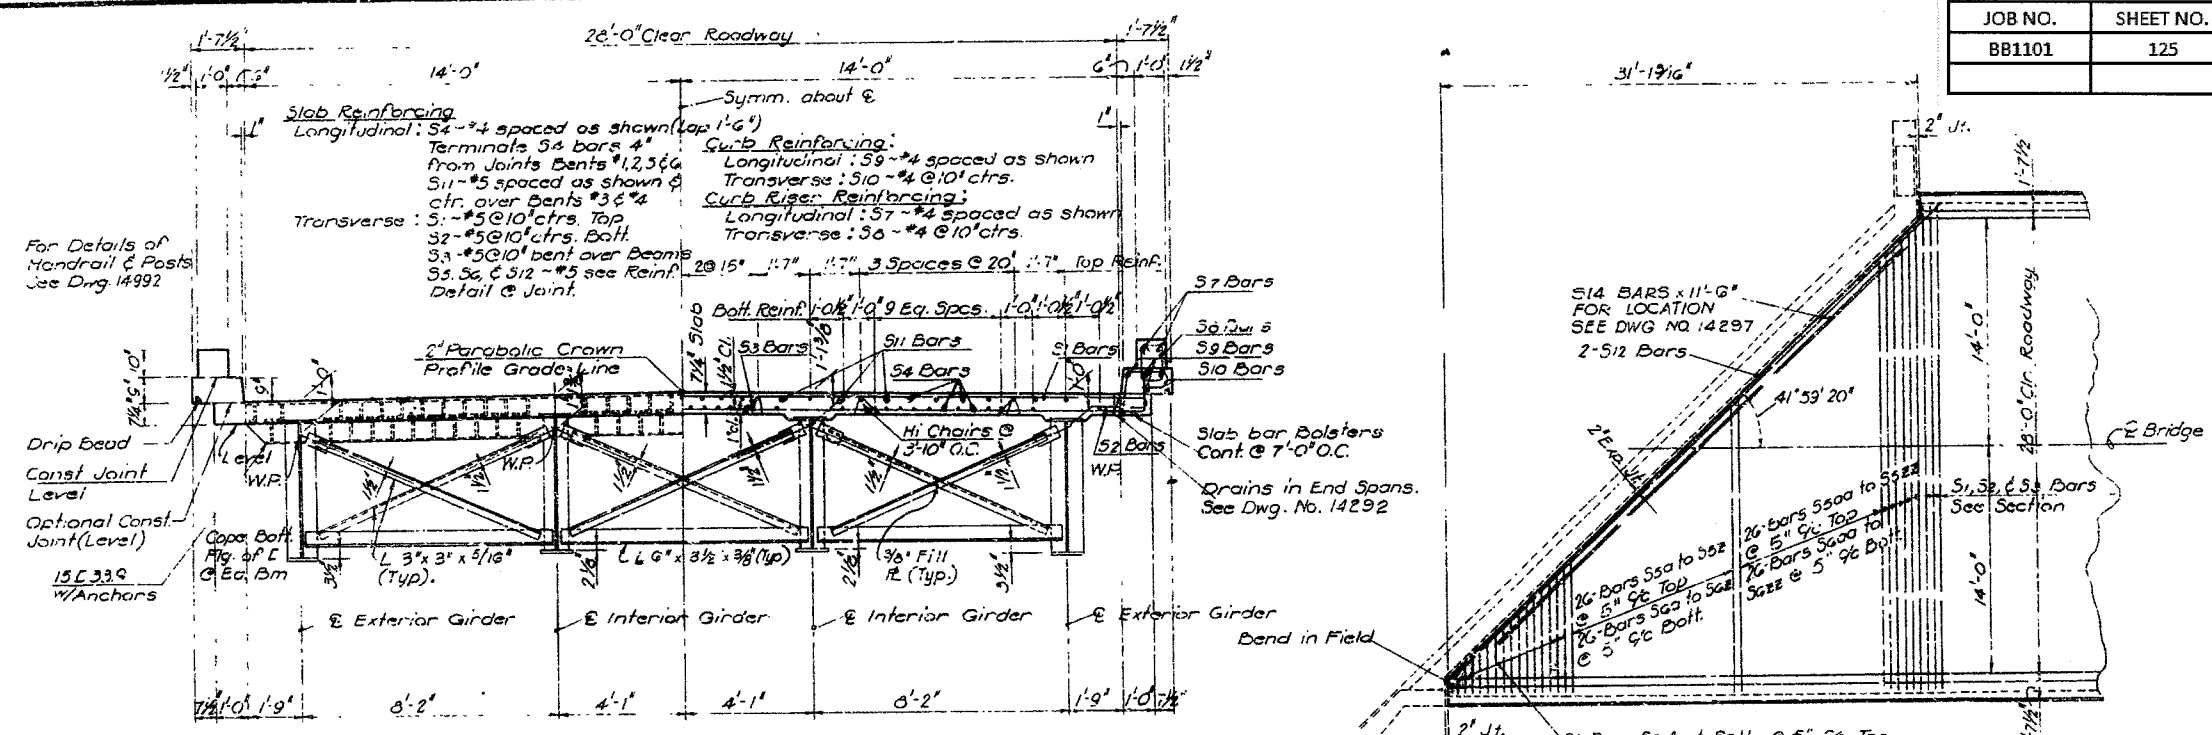 JOB NO. SHEET NO.
BB1101 125
1'-7½" 28'-0" Clear Roadway 1'-7½"
1½" 1'-0" 6" 14'-0" 14'-0" 6" 1'-0" 1½"
Symm. about ℄
1" 1"
Slab Reinforcing
Longitudinal: S4~#4 spaced as shown (Lap 1'-6")
Terminate S4 bars 4"
from Joints Bents #1,2,5&6
S11~#5 spaced as shown &
ctr. over Bents #3 & #4
Transverse: S1~#5@10" ctrs. Top
S2~#5@10" ctrs. Bott.
S3~#5@10" bent over Beams
S5, S6, & S12~#5 see Reinf.
Detail @ Joint.
Curb Reinforcing:
Longitudinal: S9~#4 spaced as shown
Transverse: S10~#4 @10" ctrs.
Curb Riser Reinforcing:
Longitudinal: S7~#4 spaced as shown
Transverse: S8~#4 @10" ctrs.
For Details of
Handrail & Posts
See Dwg. 14992
2@15" 1'-7" 1'-7" 3 Spaces @ 20" 1'-7" Top Reinf.
Bott. Reinf. 1'-0½" 1'-0" 9 Eq. Spcs. 1'-0" 1'-0½" 1'-0½"
7¼" Slab
1½" Cl.
1'-1⅜"
2" Parabolic Crown
Profile Grade Line
S3 Bars
S11 Bars
S4 Bars
S7 Bars
S8 Bars
S9 Bars
S10 Bars
10"
9"
7¼"
9"
1'-0"
1'-0"
1" Cl.
Drip Bead
Const Joint
Level
Optional Const.
Joint (Level)
Level
W.P.
W.P.
W.P.
Hi Chairs @
3'-10" O.C.
S2 Bars
Slab bar Bolsters
Cont. @ 7'-0" O.C.
Drains in End Spans.
See Dwg. No. 14292
1½" 1½" 1½" 1½" 1½" 1½"
Cope Bott.
Flg. of [
@ Ea. Bm
15 [ 33.9
w/Anchors
3½"
L 3" x 3" x 5/16"
(Typ).
2⅛"
L 6" x 3½ x ⅜ (Typ)
2⅛"
3/8" Fill
℄ (Typ.)
3½"
℄ Exterior Girder
℄ Interior Girder
℄ Interior Girder
℄ Exterior Girder
7½" 1'-0" 1'-9" 8'-2" 4'-1" 4'-1" 8'-2" 1'-9" 1'-0" 7½"
31'-1 9/16"
2" Jt.
1'-7½
S14 BARS x 11'-6"
FOR LOCATION
SEE DWG NO. 14297
2-S12 Bars
41°59'20"
2" Exp. Jt.
14'-0"
28'-0" Clr. Roadway
℄ Bridge
S1, S2, & S3 Bars
See Section
26-Bars S5aa to S5zz
@ 5" c/c Top
26-Bars S6aa to
S6zz @ 5" c/c Bott.
26-Bars S5a to S5z
@ 5" c/c Top
26-Bars S6a to S6z
@ 5" c/c Bott.
14'-0"
Bend in Field
1'-7½"
2" Jt.